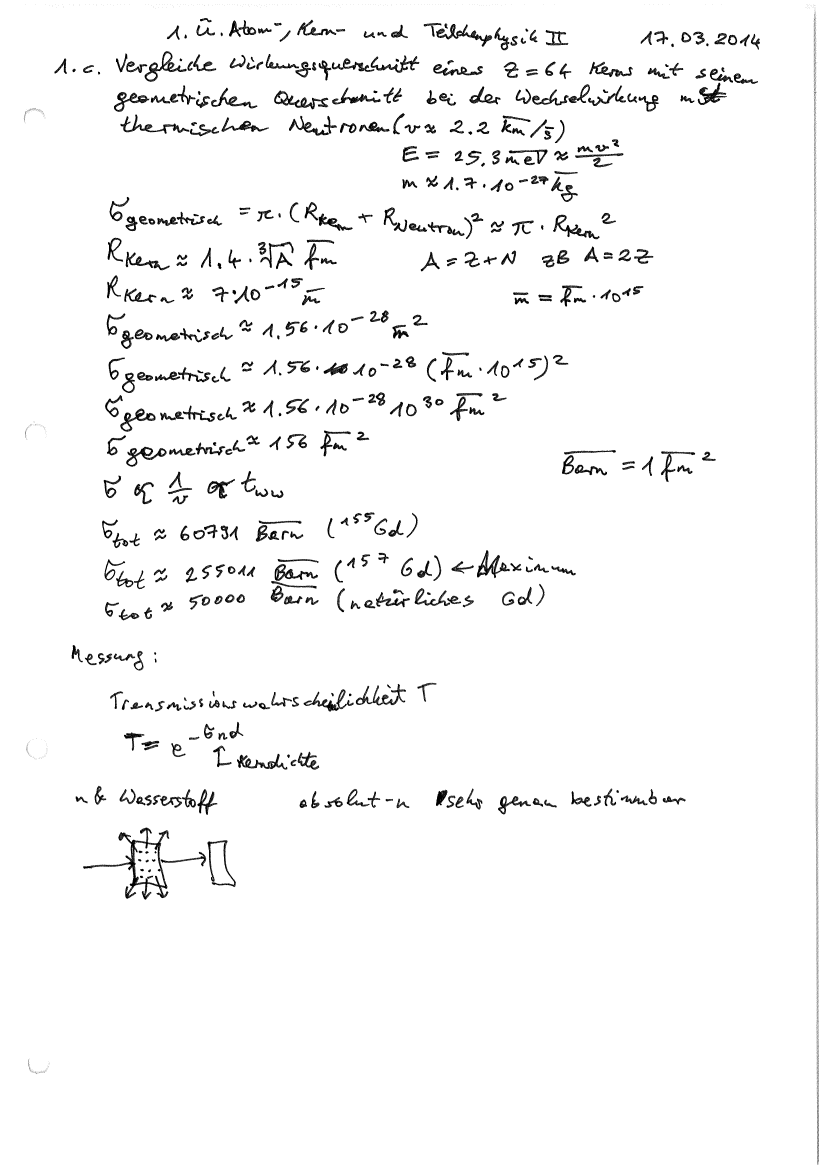 1. Ü. Atom-, Kern- und Teilchenphysik II 17.03.2014
1.c. Vergleiche Wirkungsquerschnitt eines Z=64 Kerns mit seinem
geometrischen Querschnitt bei der Wechselwirkung mit
thermischen Neutronen (v ≈ 2.2 km/s)
E = 25.3 meV ≈ mv²/2
m ≈ 1.7·10⁻²⁷ kg
σgeometrisch = π·(RKern + RNeutron)² ≈ π·RKern²
RKern ≈ 1.4·∛A fm A=Z+N zB A=2Z
RKern ≈ 7·10⁻¹⁵ m m = fm·10¹⁵
σgeometrisch ≈ 1.56·10⁻²⁸ m²
σgeometrisch ≈ 1.56·10⁻²⁸ (fm·10¹⁵)²
σgeometrisch ≈ 1.56·10⁻²⁸ 10³⁰ fm²
σgeometrisch ≈ 156 fm² Barn = 1 fm²
σ ∝ 1/v ∝ tww
σtot ≈ 60791 Barn (¹⁵⁵Gd)
σtot ≈ 255011 Barn (¹⁵⁷Gd) ← Maximum
σtot ≈ 50000 Barn (natürliches Gd)
Messung:
Transmissionswahrscheinlichkeit T
T = e^(-σnd)
Kerndichte
n & Wasserstoff absolut-n sehr genau bestimmbar